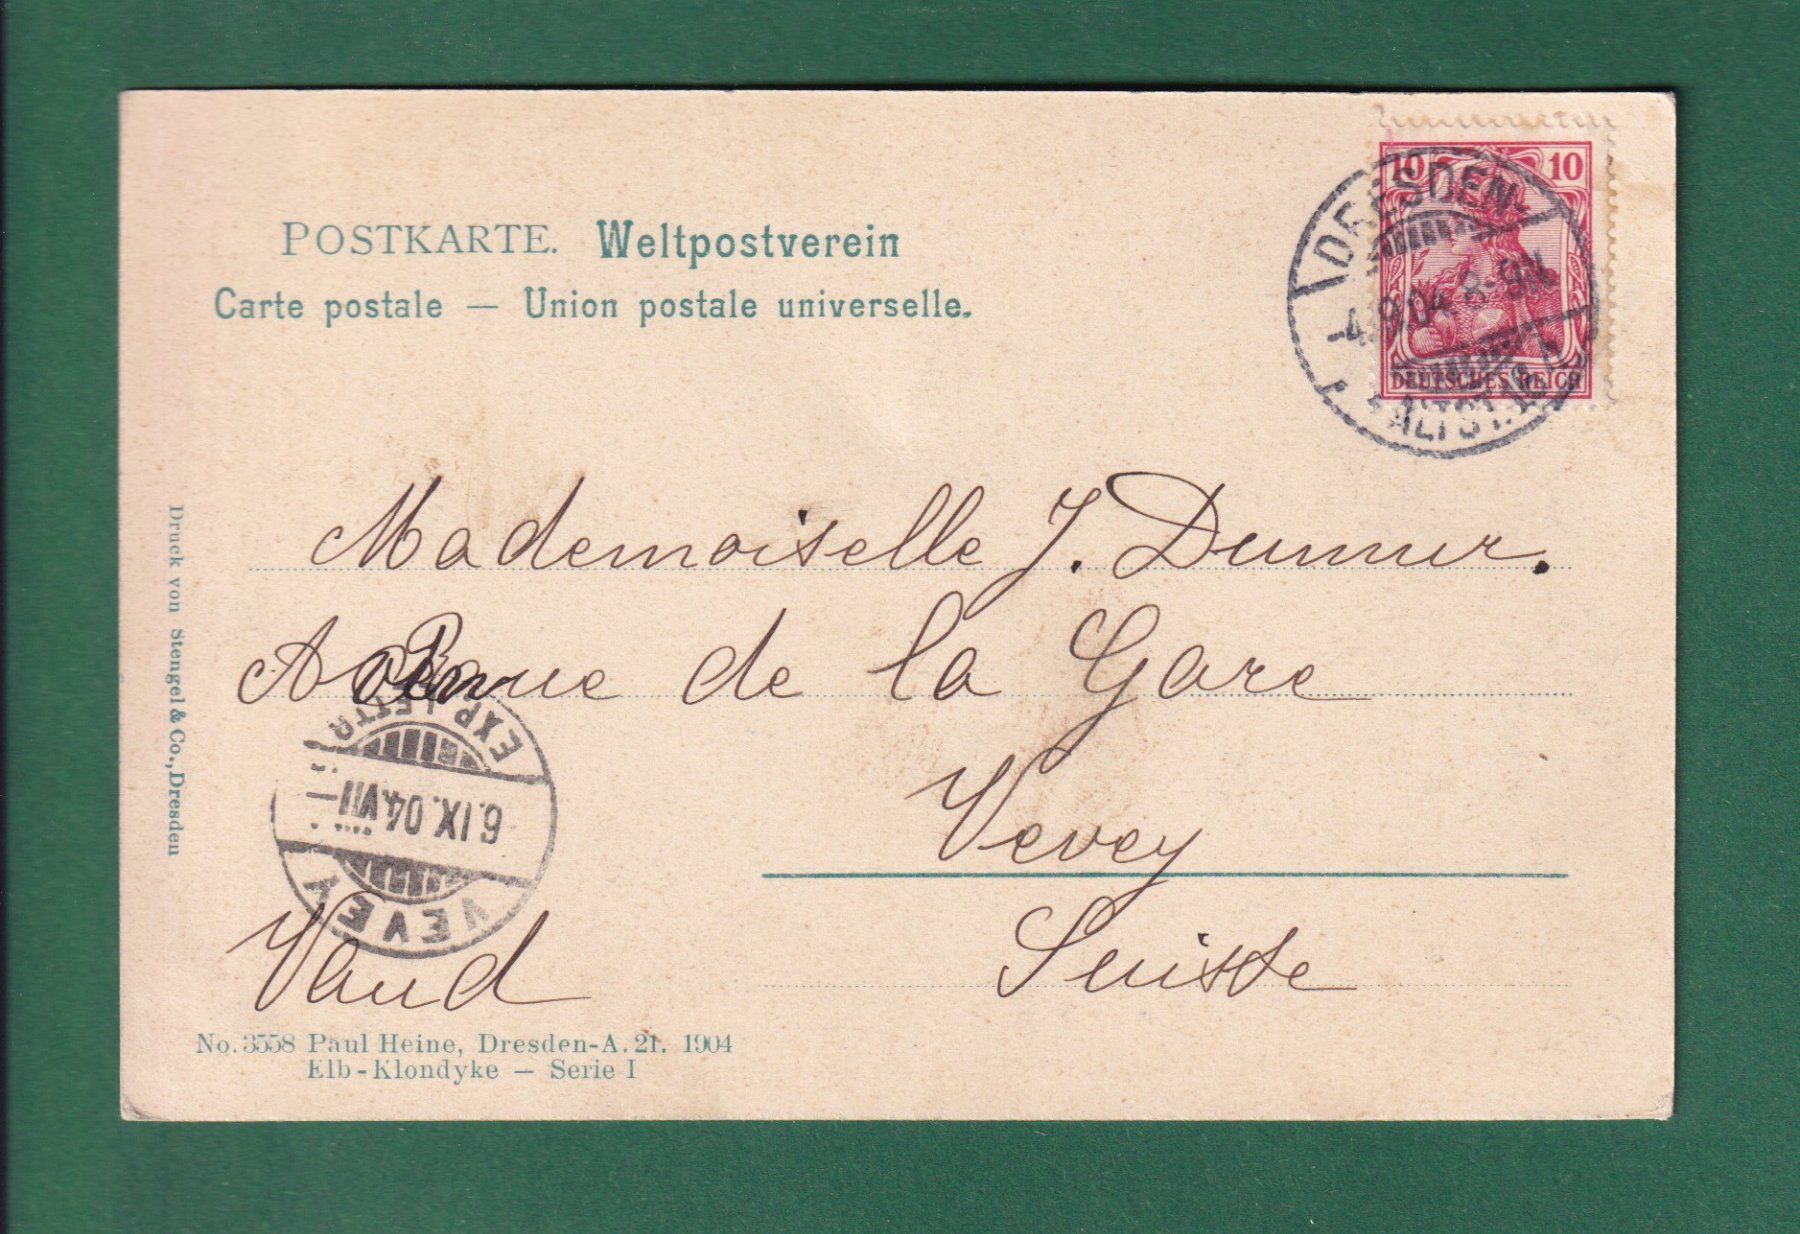 POSTKARTE. Weltpostverein
Carte postale — Union postale universelle.
10 10
DEUTSCHES REICH
DRESDEN-
-4.9.04. 8-9N
ALTST. 16
Mademoiselle J. Dumur.
Avenue de la Gare
Vevey
Suisse
Vaud
EXP. LETTR.
6.IX.04.VII
VEVEY
Druck von Stengel & Co., Dresden
No. 3558 Paul Heine, Dresden-A. 21. 1904
Elb-Klondyke — Serie I